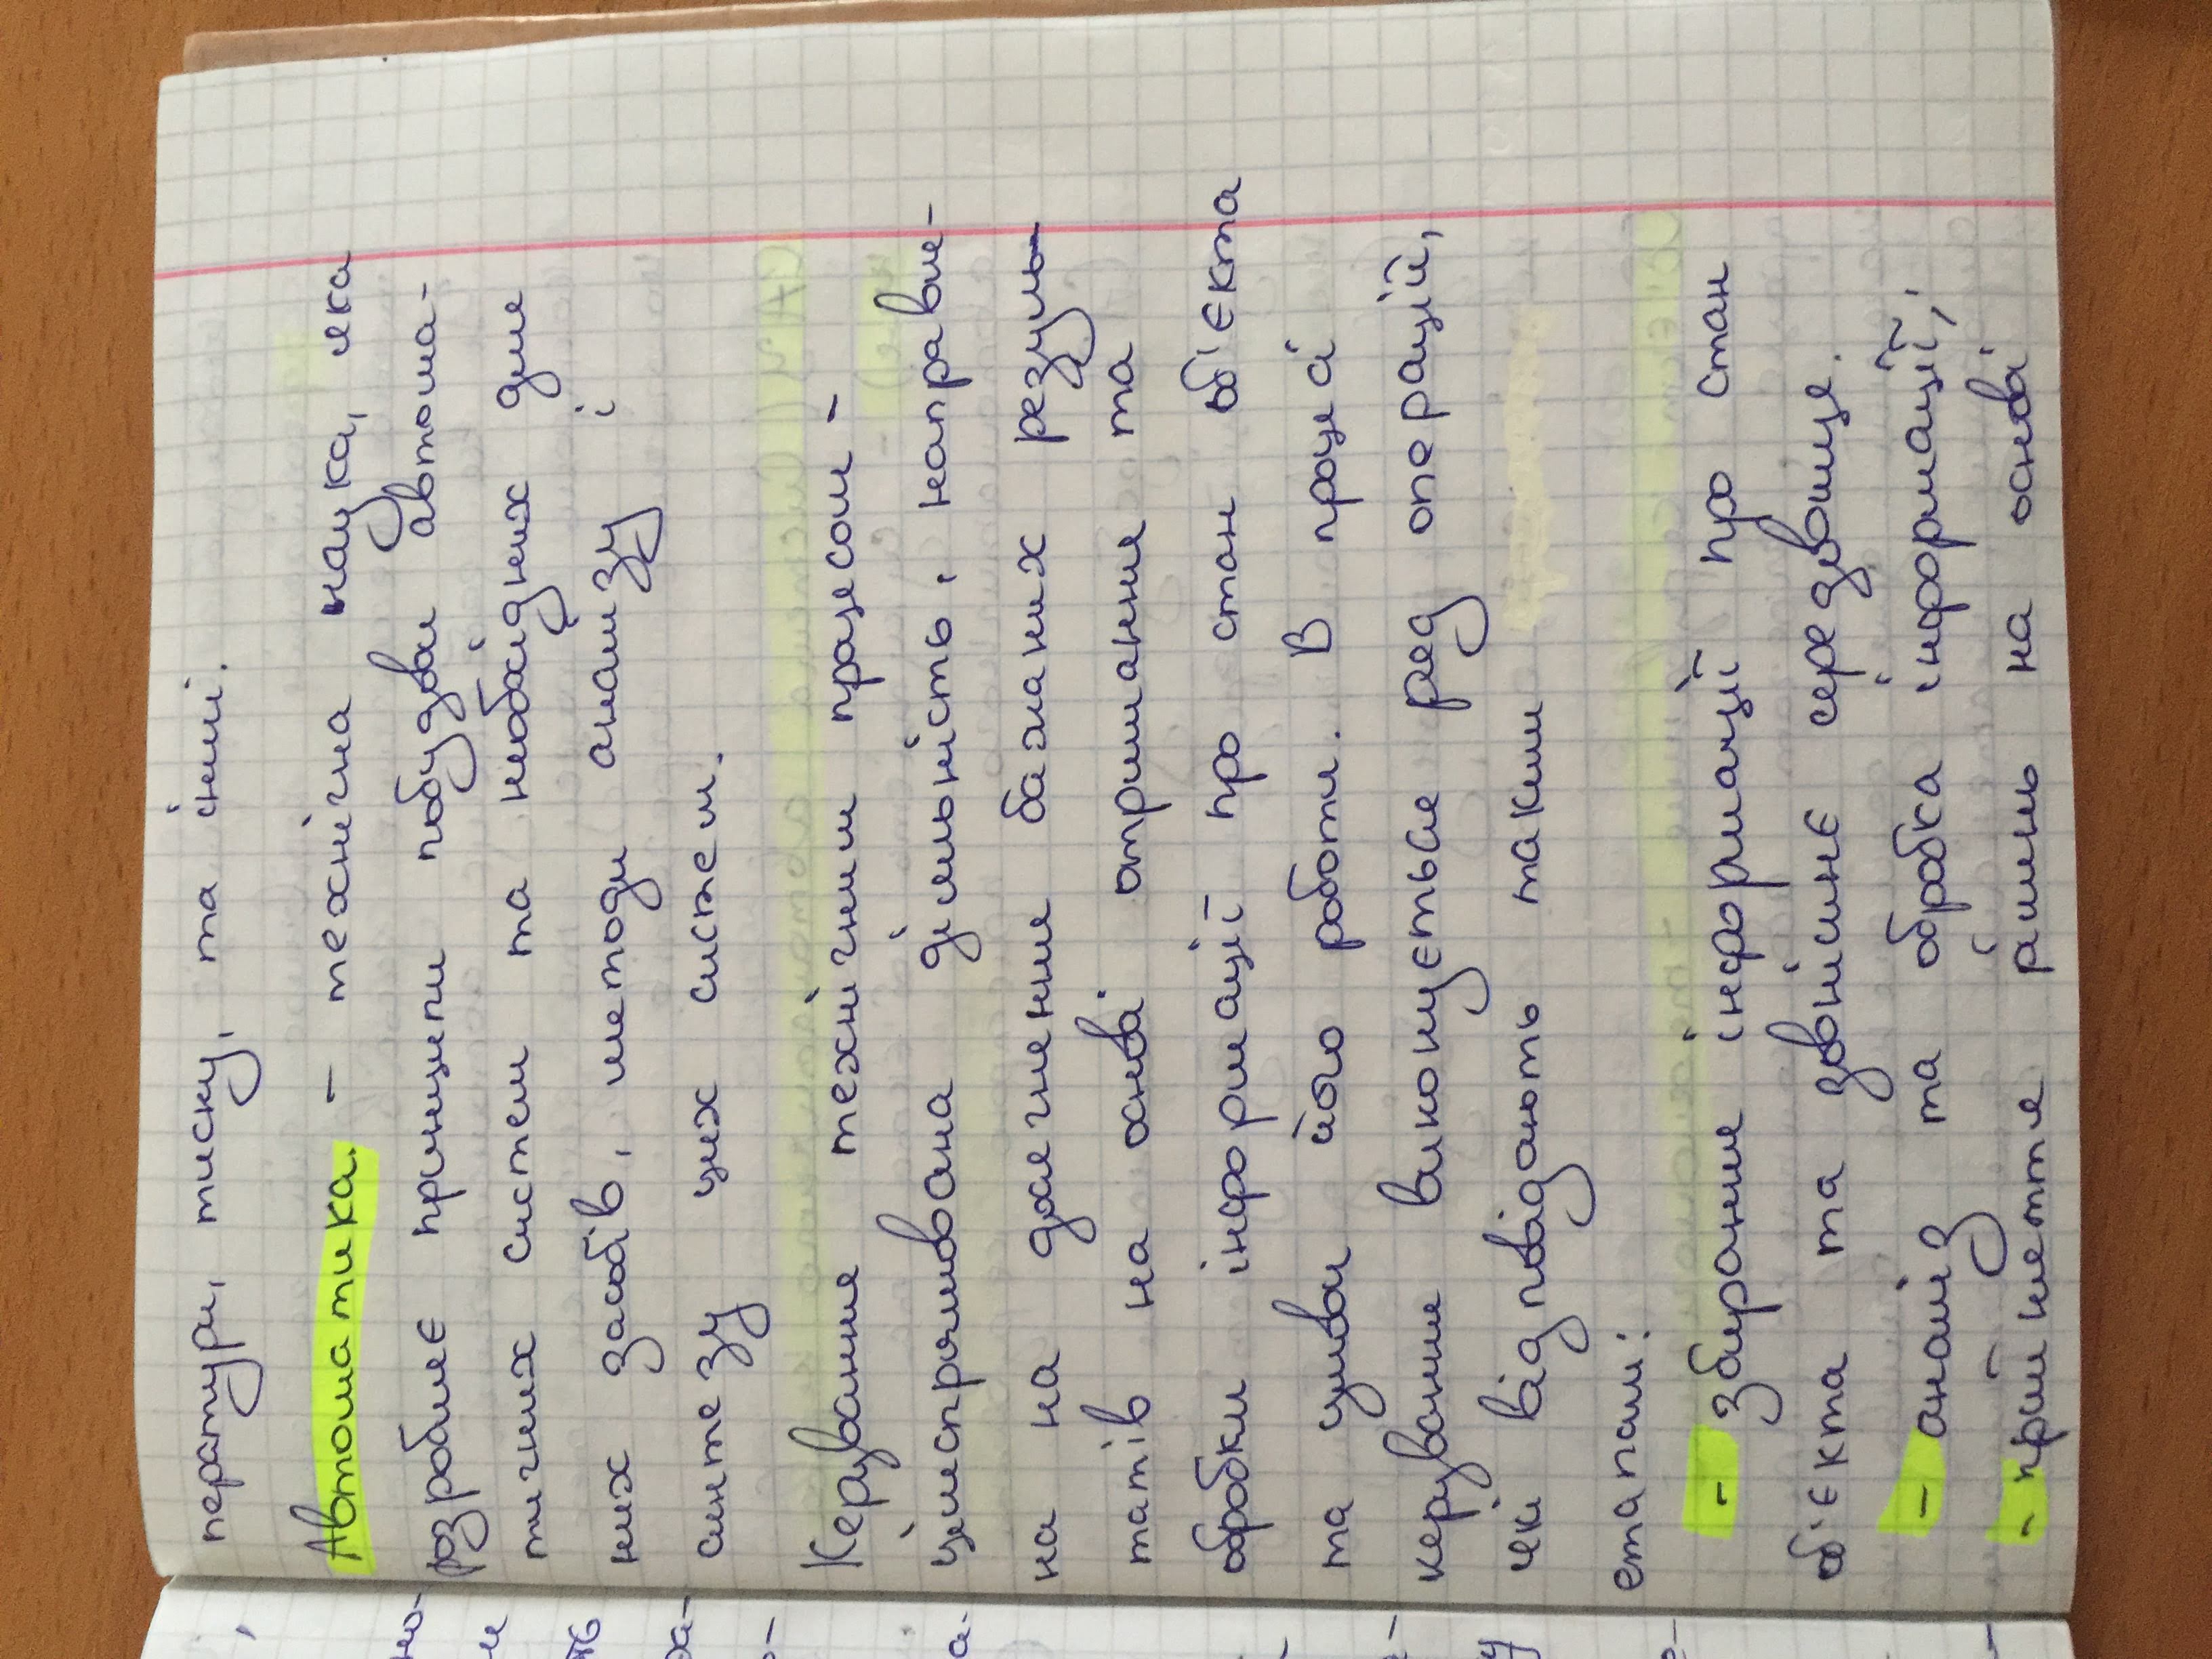 ператури, тиску, та інші.
Автоматика. - технічна наука, яка
розробляє принципи побудови автома-
тичних систем та необхідних для
них засобів, методи аналізу і
синтезу цих систем.
Керування технічним процесом -
цілеспрямована діяльність, направле-
на на досягнення бажаних резуль-
татів на основі отримання та
обробки інформації про стан об'єкта
та умови його роботи. В процесі
керування виконується ряд операцій,
які відповідають таким
етапам:
- збирання інформації про стан
об'єкта та зовнішнє середовище.
- аналіз та обробка інформації;
- прийняття рішень на основі